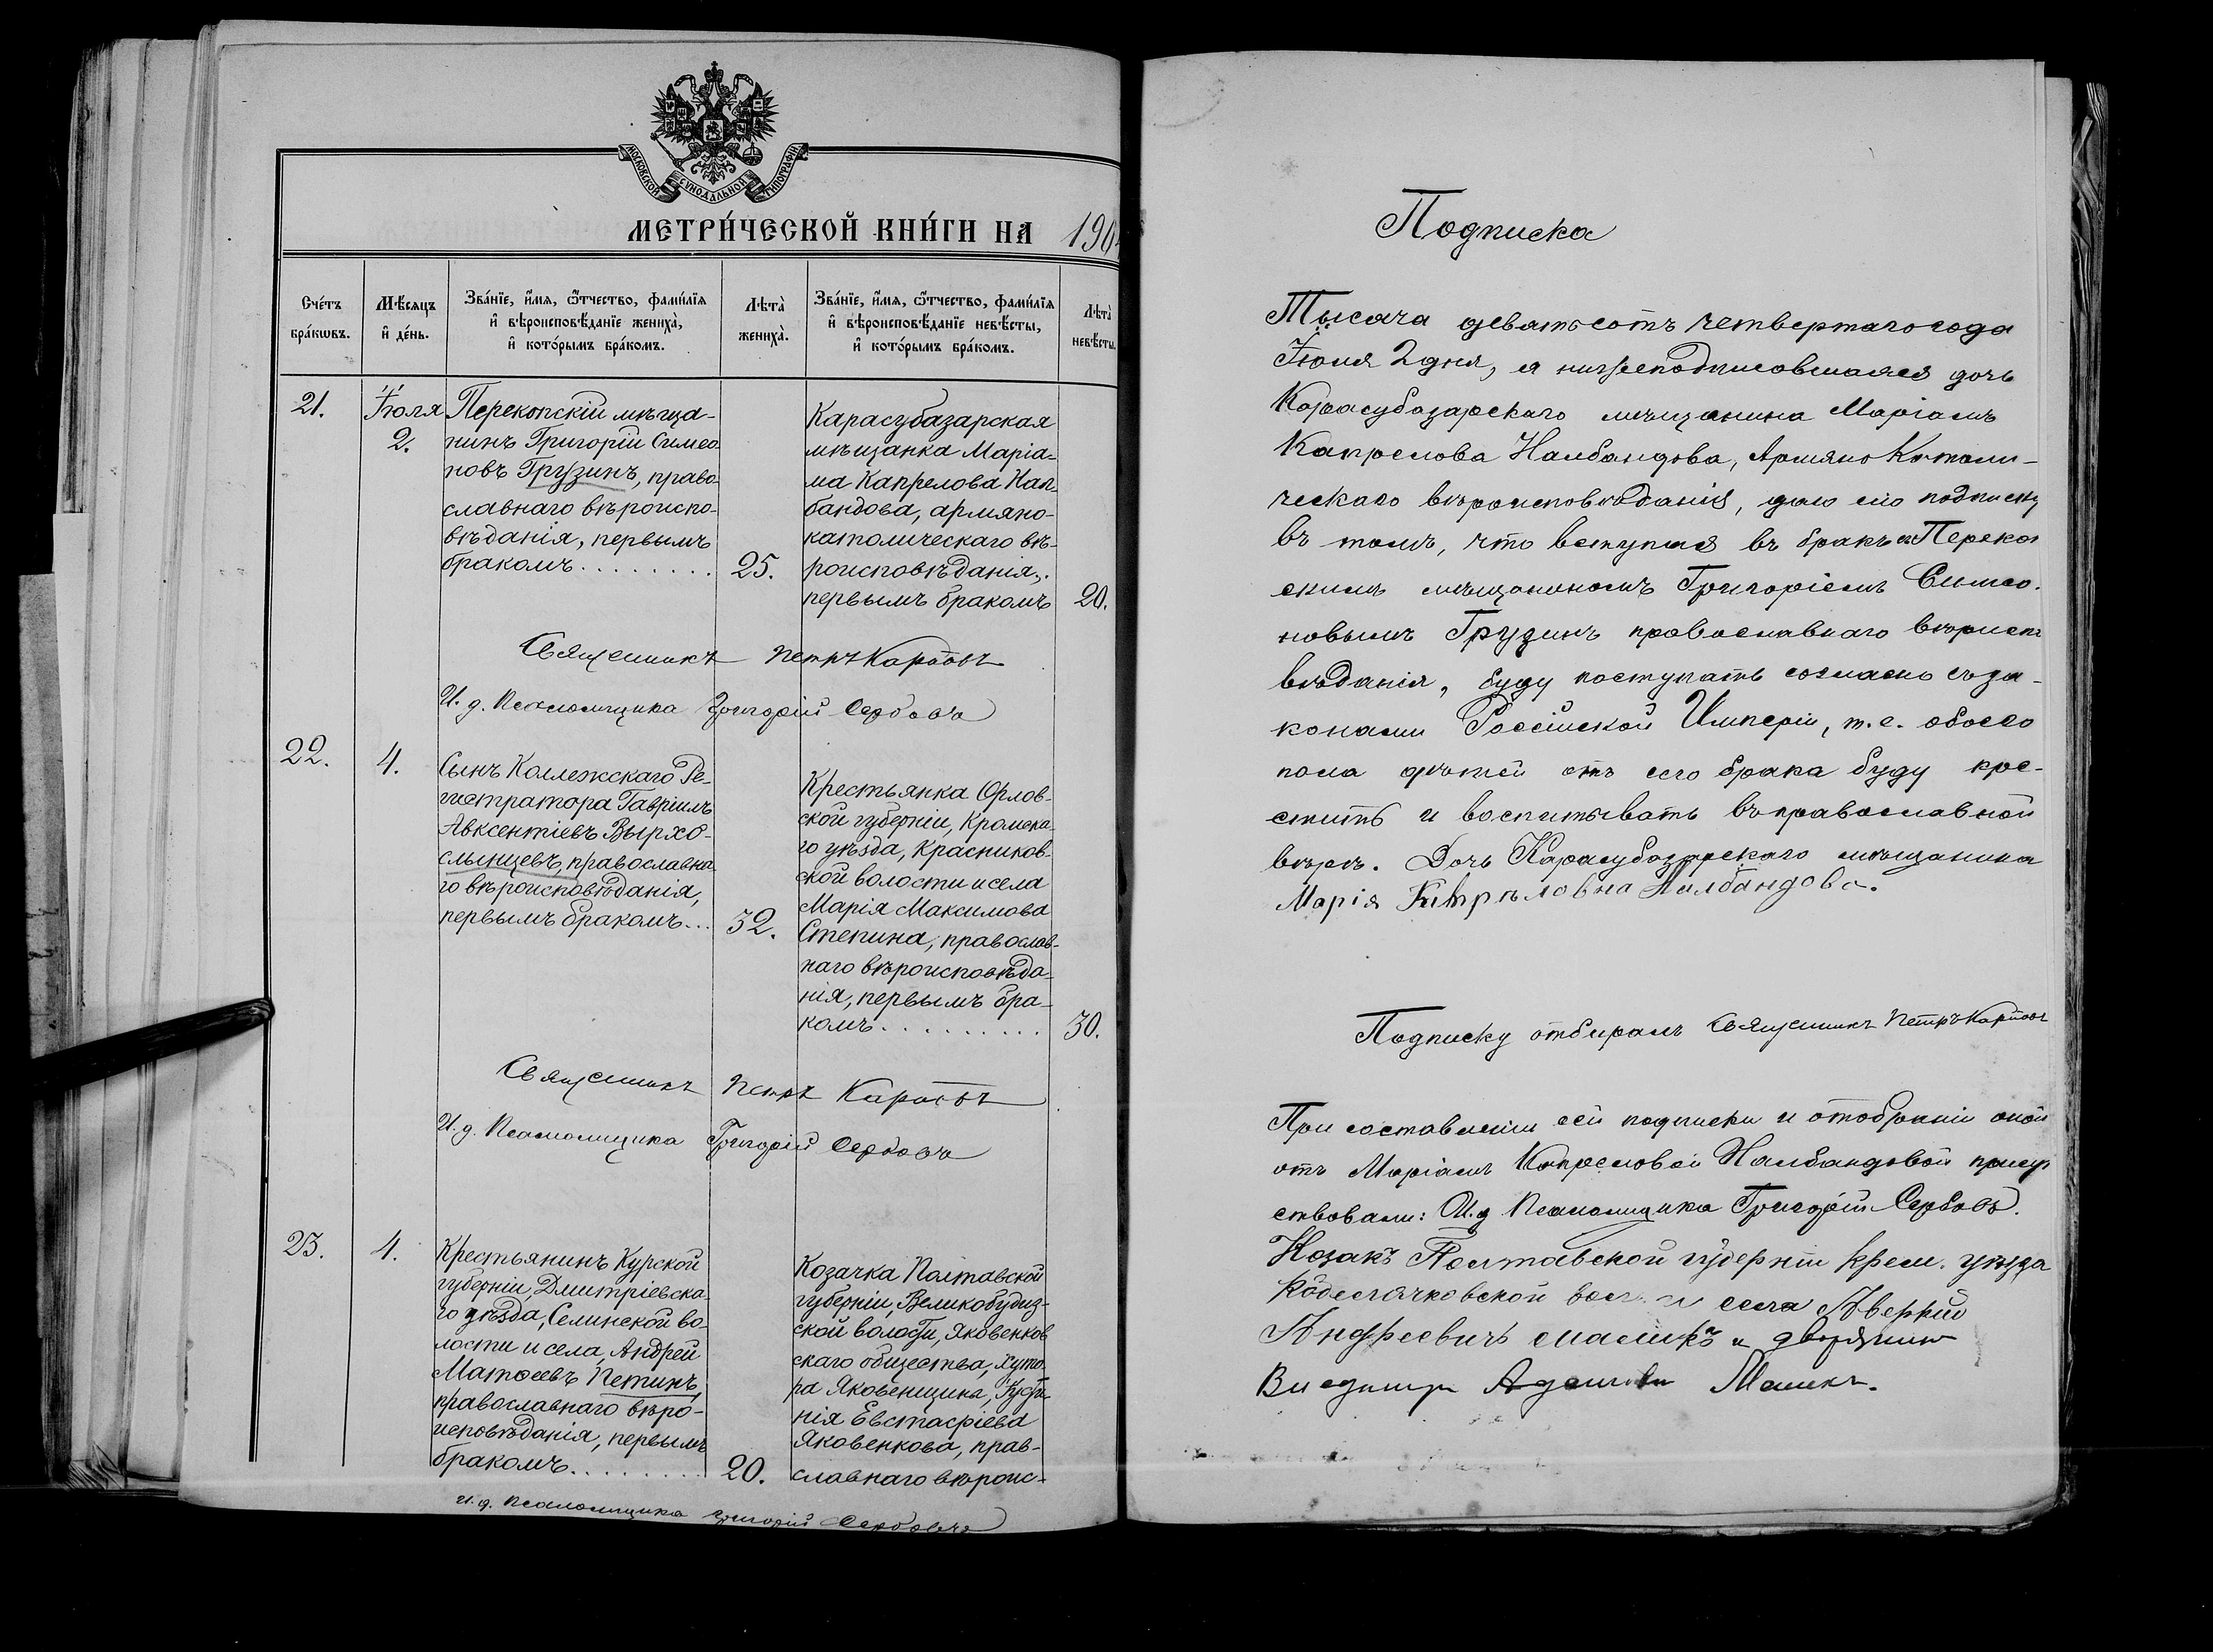 МОСКОВСКОЙ СѴНОДАЛЬНОЙ ТИПОГРАФІИ
МЕТРИ́ЧЕСКОЙ КНИ́ГИ НА 190
Сче́тъ бра́кѡвъ.
Мѣ́сяцъ и҆ де́нь.
Зва́нїе, и҆́мѧ, ѻ҆́тчество, фами́лїѧ
и҆ вѣроисповѣ́данїе жениха̀,
и҆ кото́рымъ бра́комъ.
Лѣта̀ жениха̀.
Зва́нїе, и҆́мѧ, ѻ҆́тчество, фами́лїѧ
и҆ вѣроисповѣ́данїе невѣ́сты,
и҆ кото́рымъ бра́комъ.
Лѣта̀ невѣ́сты.
21.
Іюля
2.
Перекопскій мѣща-
нинъ Григорій Симео
новъ Грузинъ, право
славнаго вѣроиспо-
вѣданія, первымъ
бракомъ........
25.
Карасубазарская
мѣщанка Маріа-
ма Капрелова Нал-
бандова, армяно-
католическаго вѣ-
роисповѣданія,
первымъ бракомъ
20.
Священникъ Петръ Карповъ
И. д. Псаломщика Григорій Сербовъ
22.
4.
Сынъ Коллежскаго Ре-
гистратора Гавріилъ
Авксентіевъ Вырхо-
слынцевъ, православна
го вѣроисповѣданія,
первымъ бракомъ...
32.
Крестьянка Орлов-
ской губерніи, Кромска-
го уѣзда, Красников-
ской волости и села
Марія Максимова
Степина, православ-
наго вѣроисповѣда-
нія, первымъ бра-
комъ..........
30.
Священникъ Петръ Карповъ
И. д. Псаломщика Григорій Сербовъ
23.
4.
Крестьянинъ Курской
губерніи, Дмитріевска-
го уѣзда, Селинской во-
лости и села, Андрей
Матѳеевъ Петинъ,
православнаго вѣро-
исповѣданія, первымъ
бракомъ........
20.
Козачка Полтавской
губерніи, Великобудиз-
ской волости, Яковенков
скаго общества, хуто-
ра Яковенщика,
нія Евстафіева
Яковенкова, прав-
славнаго вѣроис-
И. д. Псаломщика Григорій Сербовъ
Подписка
Тысяча девятьсотъ четвертаго года
Іюля 2 дня, я нижеподписавшаяся дочь
Карасубазарскаго мѣщанина Маріамъ
Капрелова Налбандова, Армяно Католи-
ческаго вѣроисповѣданія, даю сію подписку
въ томъ, что вступая въ бракъ съ Перекоп
скимъ мѣщаниномъ Григоріемъ Симео-
новымъ Грузинъ православнаго вѣроиспо
вѣданія, буду поступать согласно съ за-
конами Россійской Имперіи, т. е. обоего
пола дѣтей отъ сего брака буду кре-
стить и воспитывать въ православной
вѣрѣ. Дочь Карасубазарскаго мѣщанина
Марія Капрѣловна Налбандова.
Подписку отбиралъ Священникъ Петръ Карповъ
При составленіи сей подписки и отобраніи оной
отъ Маріамъ Капреловой Налбандовой присут
ствовали: И. д. Псаломщика Григорій Сербовъ.
Козакъ Полтавской губерніи Крем. уѣзда
вол. и села Аверкій
Андреевичъ и дворянин